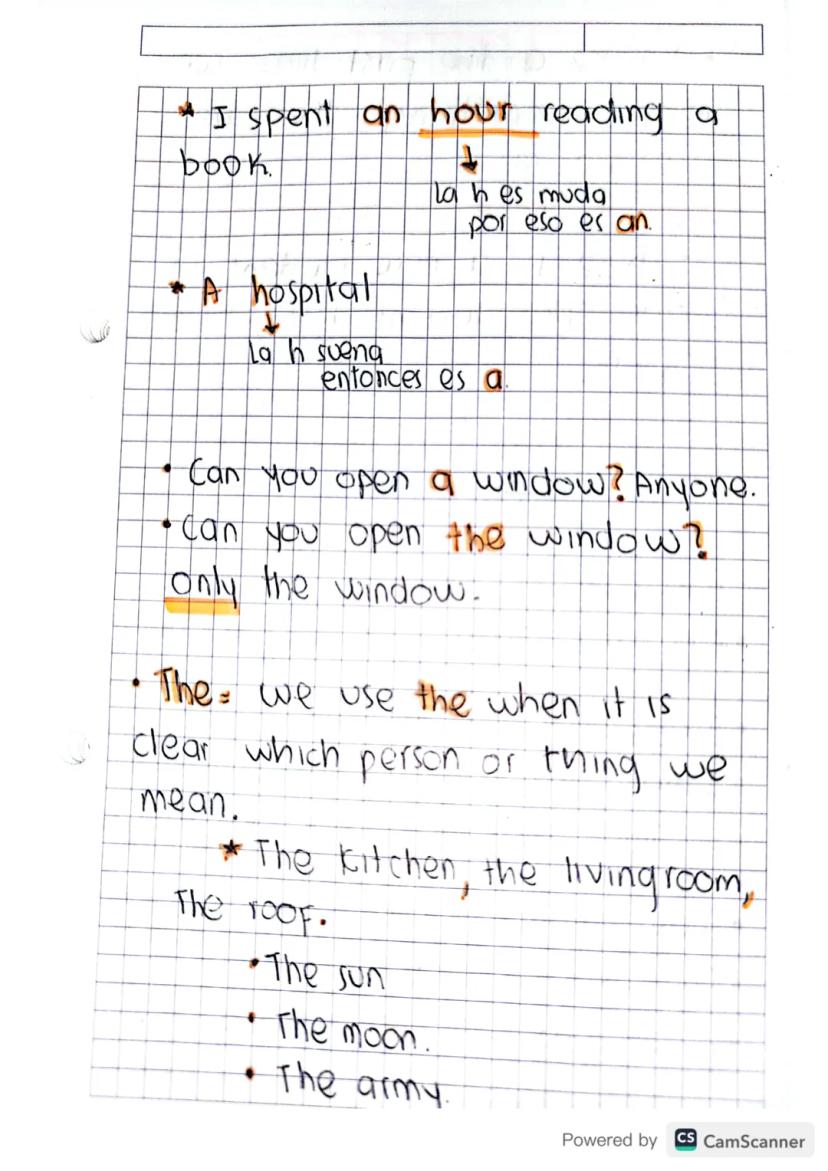 * I spent an hour reading a
book.
↓
la h es muda
por eso es an.
* A hospital
↓
la h suena
entonces es a.
• Can you open a window? Anyone.
• Can you open the window?
only the window.
• The = we use the when it is
clear which person or thing we
mean.
* The kitchen, the livingroom,
The roof.
• The sun
• The moon.
• The army.
Powered by CS CamScanner